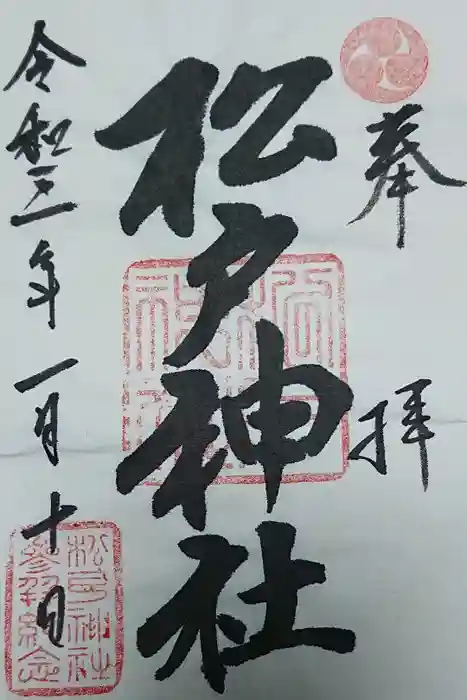 奉拝
松戸神社
令和三年一月十日
松戸神社
参拝紀念